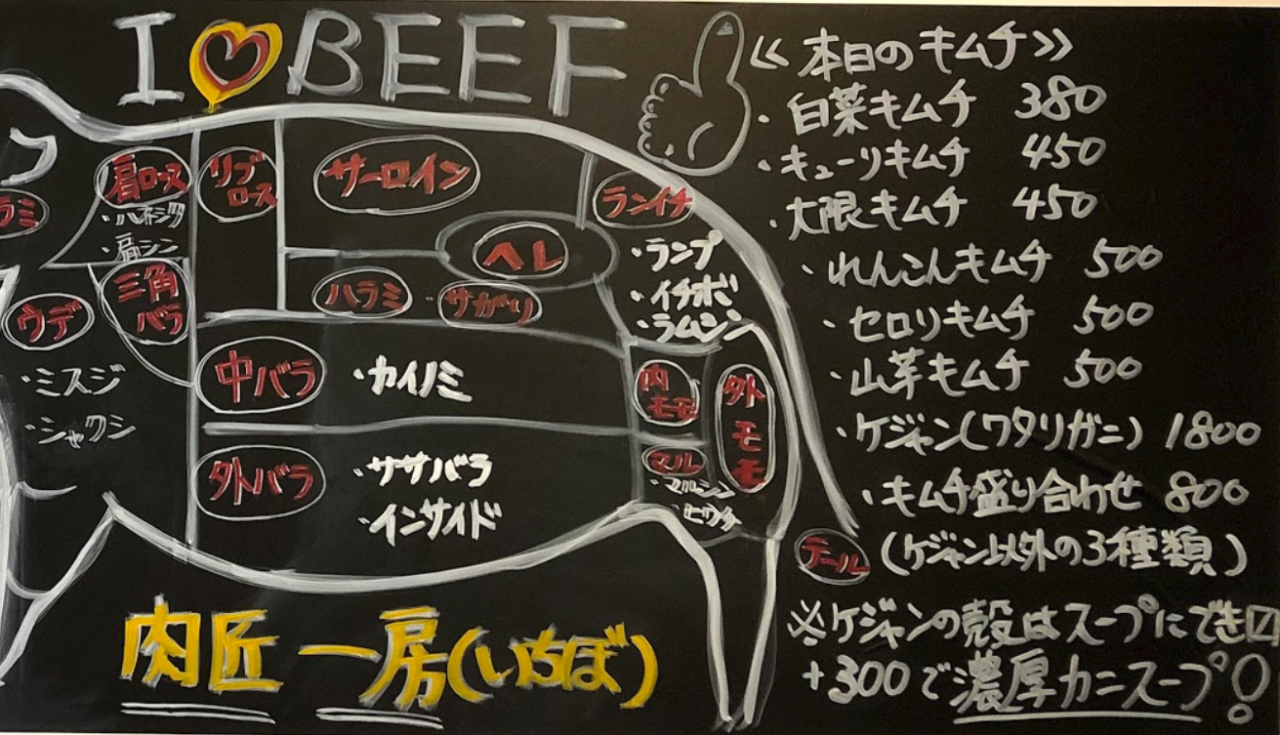 I ♡ BEEF
ラミ
肩ロース
・ハネジタ
・肩シン
リブロース
サーロイン
ヘレ
ランイチ
・ランプ
・イチボ
・ラムシン
ウデ
・ミスジ
・シャクシ
三角バラ
ハラミ・サガリ
中バラ ・カイノミ
外バラ ・ササバラ
・インサイド
内モモ
外モモ
マル
・マルシン
・ヒウチ
テール
肉匠 一房(いちぼ)
≪本日のキムチ≫
・白菜キムチ 380
・キューリキムチ 450
・大限キムチ 450
・れんこんキムチ 500
・セロリキムチ 500
・山芋キムチ 500
・ケジャン(ワタリガニ) 1800
・キムチ盛り合わせ 800
(ケジャン以外の3種類)
※ケジャンの殻はスープにでき〼
+300で濃厚カニスープ!